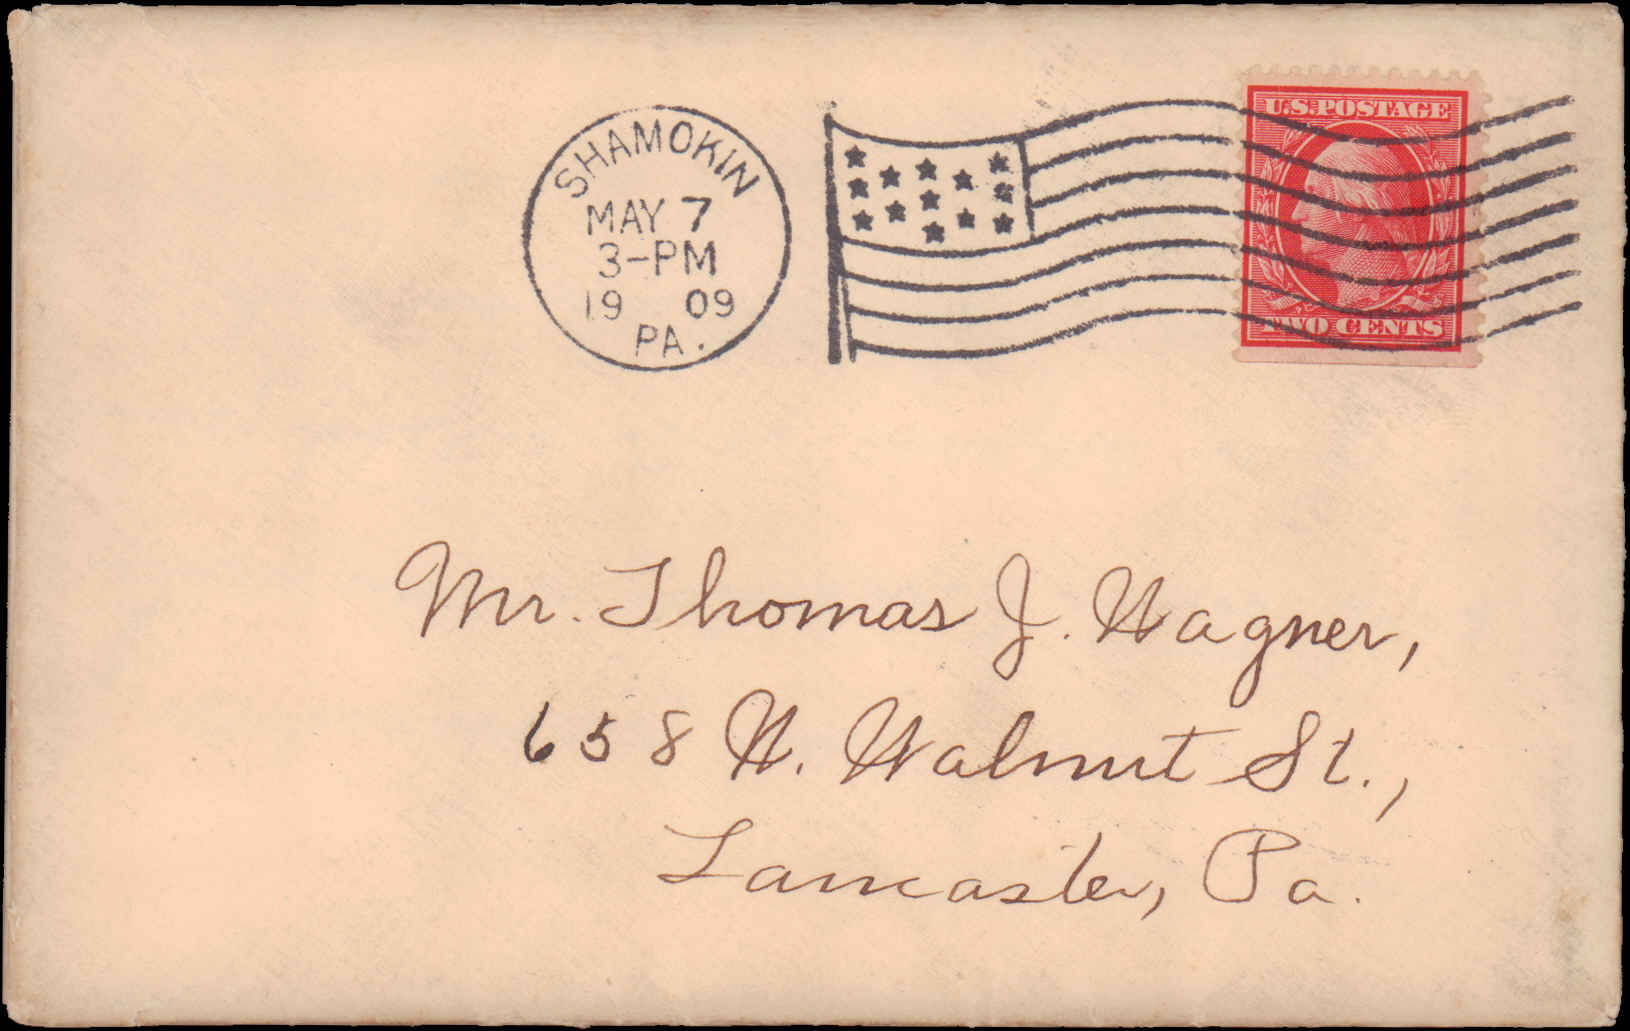 SHAMOKIN
MAY 7
3-PM
19 09
PA.
U.S. POSTAGE
TWO CENTS
Mr. Thomas J. Wagner,
658 W. Walnut St.,
Lancaster, Pa.